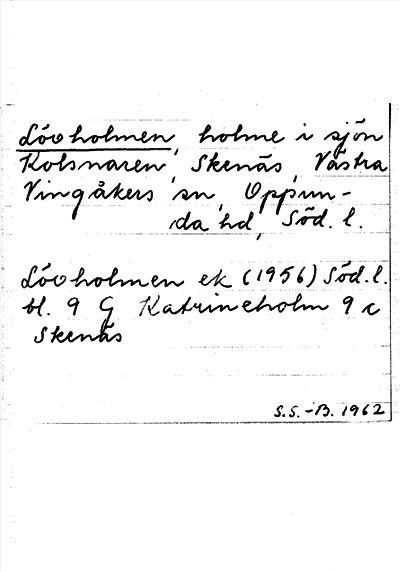 Lövholmen, holme i sjön
Kolsnaren, Skenäs, Västra
Vingåkers sn, Oppun-
da hd, Söd. l.
Lövholmen ek (1956) Söd. l.
bl. 9 G Katrineholm 9 c
Skenäs
S.S.-B. 1962